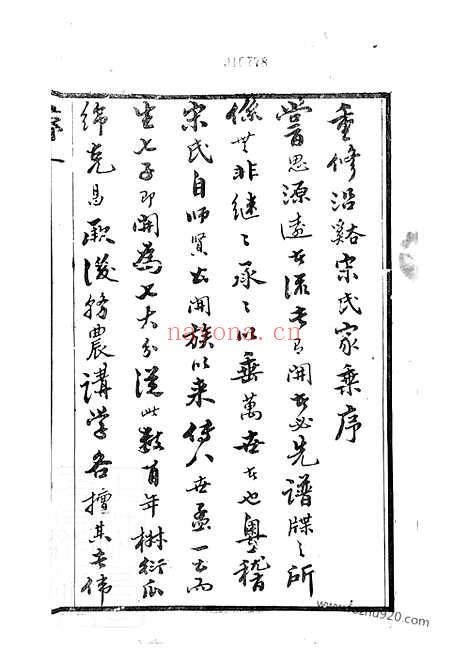 010778
重修沿谿宋氏家乘序
嘗思源遠者流長開者必先譜牒之所
係無非繼繼承承以垂萬世者也粵稽
宋氏自師賢公開族以来傳八世孟一公而
生七子即開為七大分從此數百年椒衍瓜
綿克昌厥後務農講學各擅其長偉
nayona.cn
www.fozhu920.com